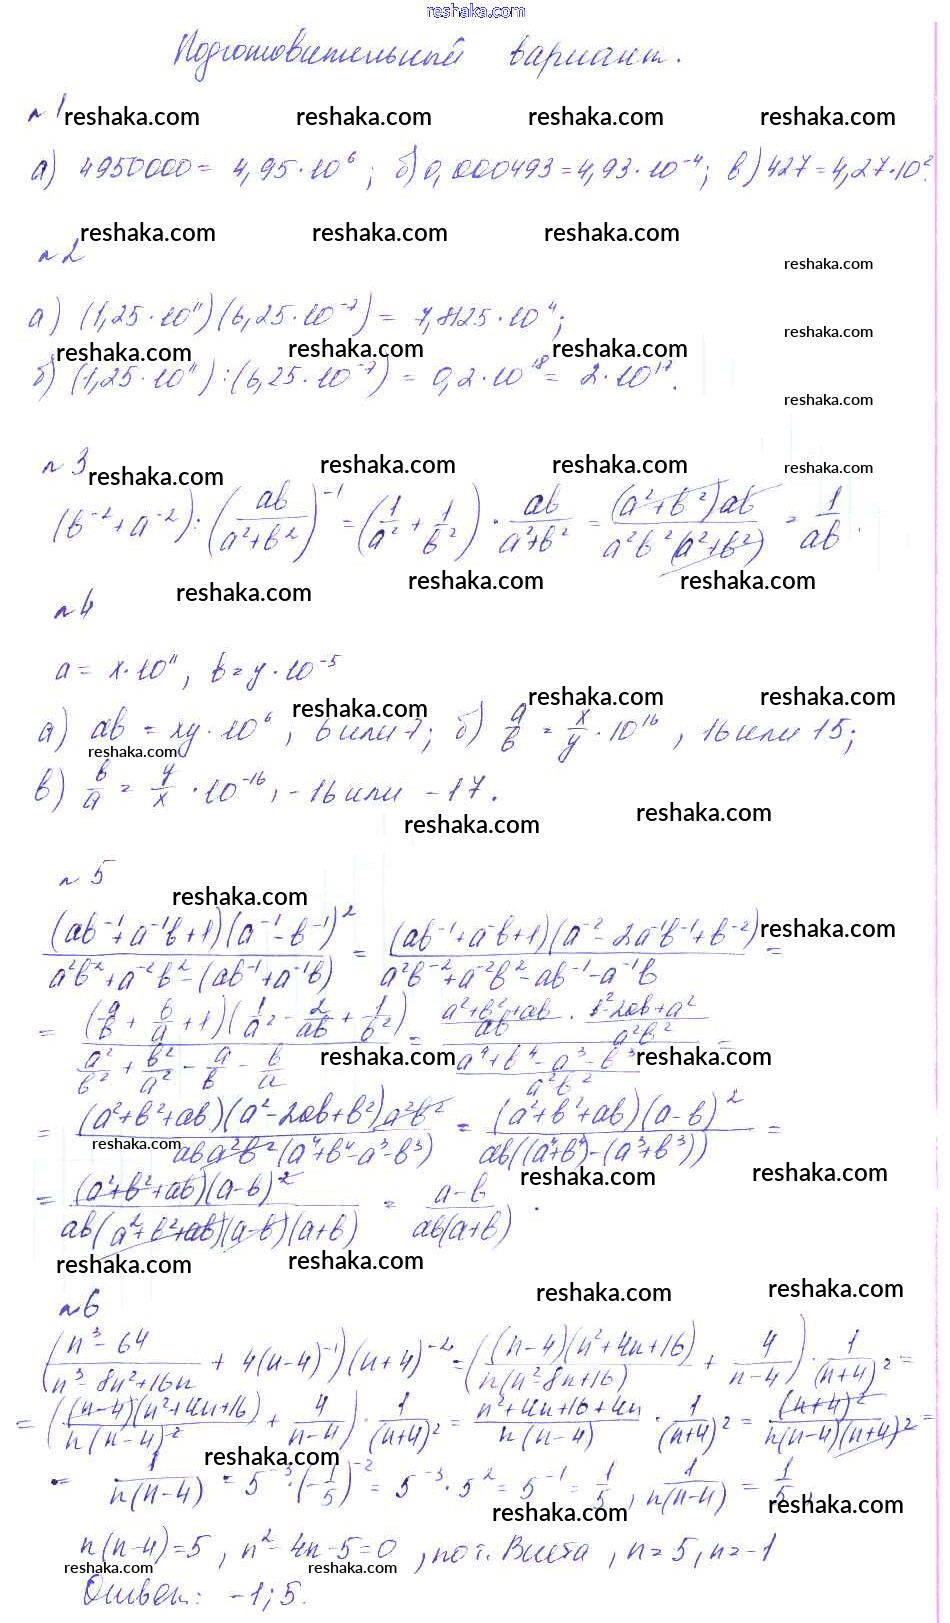 reshaka.com
Подготовительный вариант.
n 1 reshaka.com reshaka.com reshaka.com reshaka.com
а) 4950000 = 4,95·10⁶; б) 0,000493 = 4,93·10⁻⁴; в) 427 = 4,27·10².
reshaka.com reshaka.com reshaka.com
n 2 reshaka.com
а) (1,25·10¹¹)(6,25·10⁻⁷) = 7,8125·10⁴; reshaka.com
reshaka.com reshaka.com reshaka.com
б) (1,25·10¹¹):(6,25·10⁻⁷) = 0,2·10¹⁸ = 2·10¹⁷. reshaka.com
n 3 reshaka.com reshaka.com reshaka.com reshaka.com
(b⁻² + a⁻²):(ab/(a²+b²))⁻¹ = (1/a² + 1/b²)·ab/(a²+b²) = (a²+b²)ab/(a²b²(a²+b²)) = 1/ab.
reshaka.com reshaka.com reshaka.com
n 4
a = x·10¹¹, b = y·10⁻⁵
reshaka.com reshaka.com reshaka.com
а) ab = xy·10⁶, 6 или 7; б) a/b = x/y·10¹⁶, 16 или 15;
reshaka.com
в) b/a = y/x·10⁻¹⁶, -16 или -17.
reshaka.com reshaka.com
n 5
reshaka.com
(ab⁻¹+a⁻¹b+1)(a⁻¹-b⁻¹)²/(a²b⁻²+a⁻²b²-(ab⁻¹+a⁻¹b)) = (ab⁻¹+a⁻¹b+1)(a⁻²-2a⁻¹b⁻¹+b⁻²)/(a²b⁻²+a⁻²b²-ab⁻¹-a⁻¹b) = reshaka.com
= (a/b + b/a + 1)(1/a² - 2/ab + 1/b²)/(a²/b² + b²/a² - a/b - b/a) = ((a²+b²+ab)/ab · (b²-2ab+a²)/a²b²)/((a⁴+b⁴-a³-b³)/a²b²) =
reshaka.com reshaka.com
= (a²+b²+ab)(a²-2ab+b²)a²b²/(ab a²b²(a⁴+b⁴-a³-b³)) = (a²+b²+ab)(a-b)²/(ab((a⁴+b⁴)-(a³+b³))) =
reshaka.com reshaka.com reshaka.com
= (a²+b²+ab)(a-b)²/(ab(a²+b²+ab)(a-b)(a+b)) = (a-b)/(ab(a+b)).
reshaka.com reshaka.com reshaka.com reshaka.com
n 6
((n³-64)/(n³-8n²+16n) + 4(n-4)⁻¹)(n+4)⁻² = ((n-4)(n²+4n+16)/(n(n²-8n+16)) + 4/(n-4))·1/(n+4)² =
= ((n-4)(n²+4n+16)/(n(n-4)²) + 4/(n-4))·1/(n+4)² = (n²+4n+16+4n)/(n(n-4))·1/(n+4)² = (n+4)²/(n(n-4)(n+4)²) =
reshaka.com
= 1/(n(n-4)) = 5⁻³·(-1/5)⁻² = 5⁻³·5² = 5⁻¹ = 1/5, 1/(n(n-4)) = 1/5,
reshaka.com reshaka.com
n(n-4)=5, n²-4n-5=0, по т. Виета, n=5, n=-1
reshaka.com reshaka.com
Ответ: -1; 5.